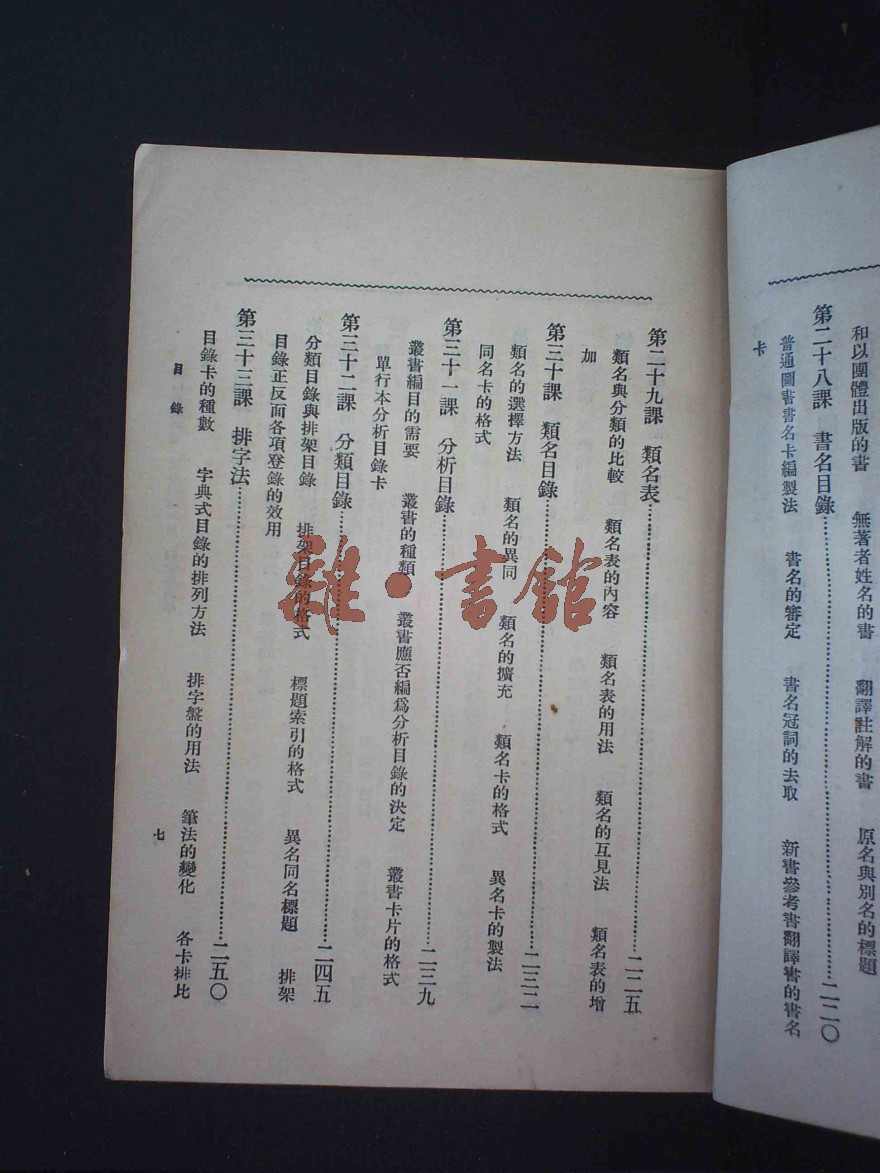 和以團體出版的書　無著者姓名的書　翻譯註解的書　原名與別名的標題
第二十八課　書名目錄……二二〇
普通圖書書名卡編製法　書名的審定　書名冠詞的去取　新書參考書翻譯書的書名
卡
第二十九課　類名表……二二五
類名與分類的比較　類名表的內容　類名表的用法　類名的互見法　類名表的增
加
第三十課　類名目錄……二三二
類名的選擇方法　類名的異同　類名的擴充　類名卡的格式　異名卡的製法
同名卡的格式
第三十一課　分析目錄……二三九
叢書編目的需要　叢書的種類　叢書應否編為分析目錄的決定　叢書卡片的格式
單行本分析目錄卡
第三十二課　分類目錄……二四五
分類目錄與排架目錄　排架目錄的格式　標題索引的格式　異名同名標題　排架
目錄正反面各項登錄的效用
第三十三課　排字法……二五〇
目錄卡的種數　字典式目錄的排列方法　排字盤的用法　筆法的變化　各卡排比
目錄
七
雜·書館